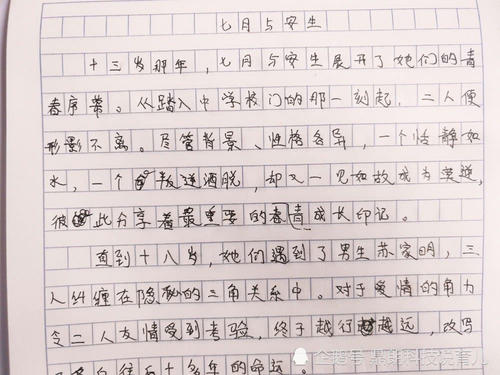 七月与安生
十三岁那年，七月与安生展开了她们的青
春序幕。从踏入中学校门的那一刻起，二人便
形影不离。尽管背景、性格各异，一个恬静如
水，一个叛逆洒脱，却又一见如故成为莫逆，
彼此分享着最重要的春青成长印记。
直到十八岁，她们遇到了男生苏家明，三
人纠缠在隐秘的三角关系中。对于爱情的角力
令二人友情受到考验，终于越行越远，改写
了各自往后十多年的命运。